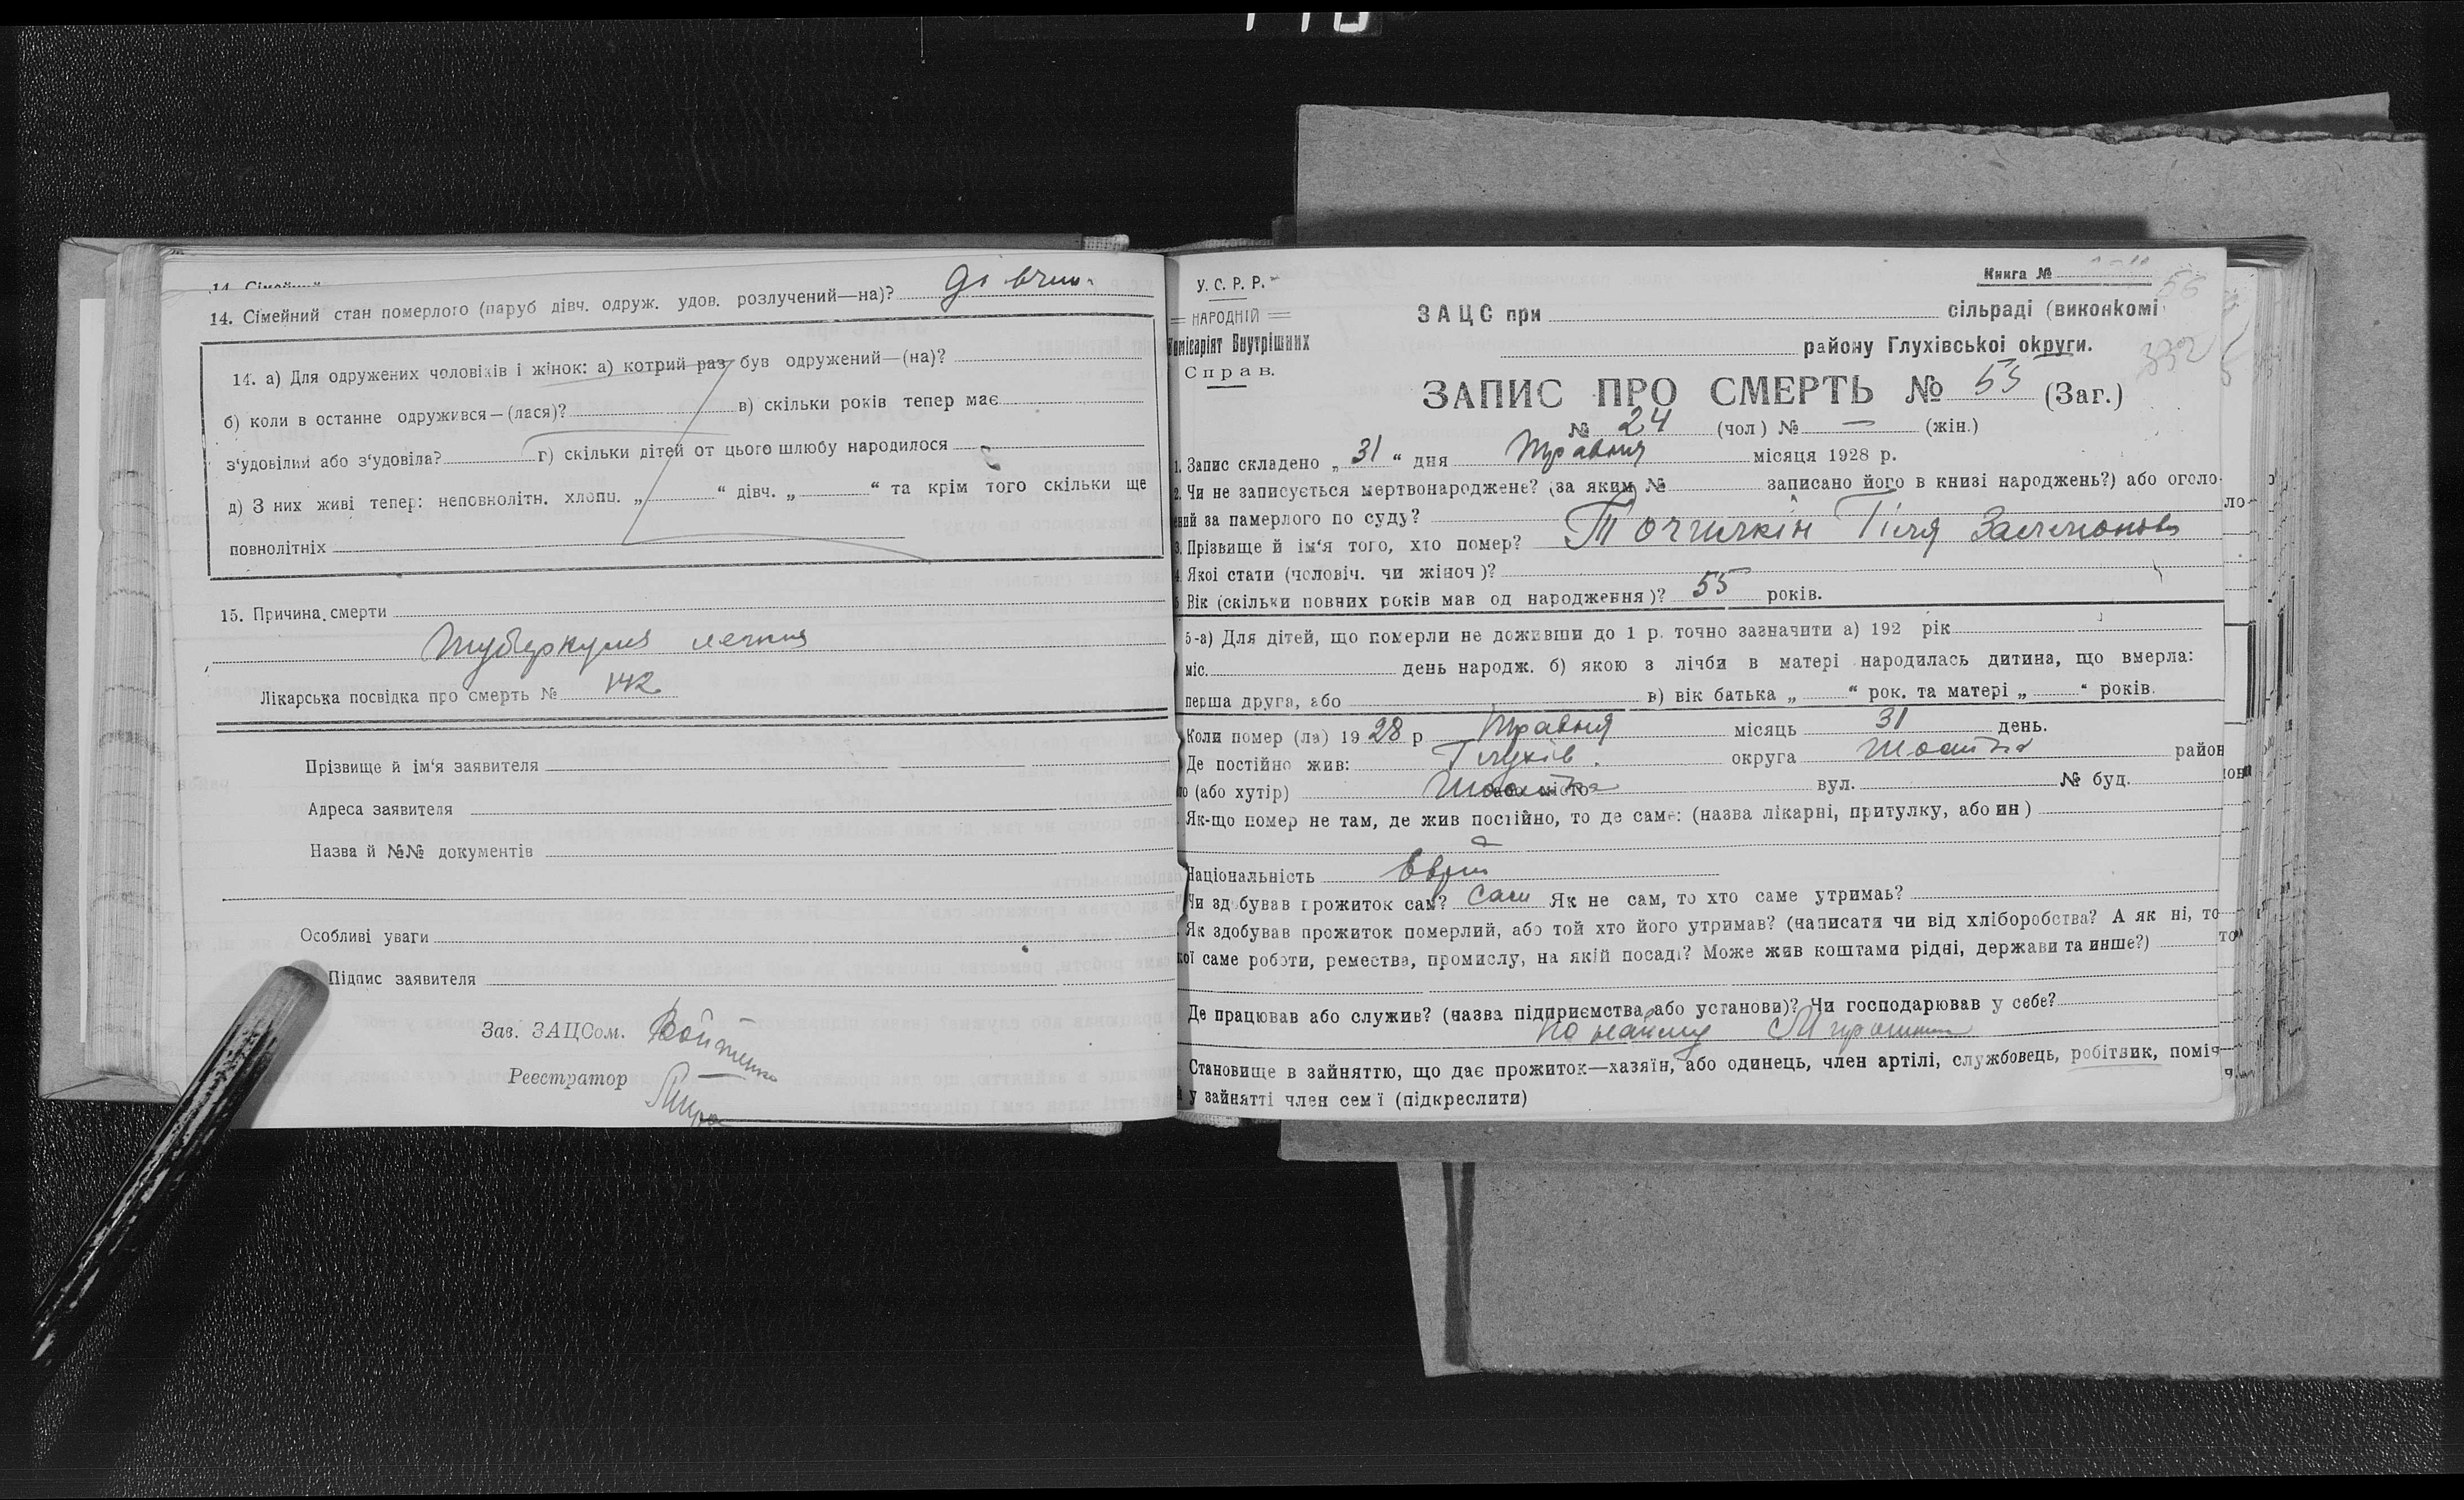 14. Сімейний стан померлого (паруб дівч. одруж. удов. розлучений—на)? дівчин.
14. а) Для одружених чоловіків і жінок: а) котрий раз був одружений—(на)?
б) коли в останне одружився—(лася)? в) скільки років тепер має
з‘удовілий або з‘удовіла? г) скільки дітей от цього шлюбу народилося
д) З них живі тепер: неповнолітн. хлопц. „ “ дівч. „ “ та крім того скільки ще
повнолітніх
15. Причина смерти
туберкулез легких
Лікарська посвідка про смерть № 142
Прізвище й ім‘я заявителя
Адреса заявителя
Назва й №№ документів
Особливі уваги
Підпис заявителя
Зав. ЗАЦСом. Войтенко
Реєстратор
Книга №
У. С. Р. Р.
НАРОДНІЙ
Комісаріят Внутрішних
Справ.
55
332
ЗАЦС при сільраді (виконкомі
району Глухівської округи.
ЗАПИС ПРО СМЕРТЬ № 55 (Заг.)
№ 24 (чол) № — (жін.)
1. Запис складено „31“ дня Травня місяця 1928 р.
2. Чи не записується мертвонароджене? (за яким № записано його в книзі народжень?) або оголо-
ений за памерлого по суду?
3. Прізвище й ім‘я того, хто помер? Точилкін Гіля
4. Якої стати (чоловіч. чи жіноч)?
5 Вік (скільки повних років мав од народження)? 55 років.
5-а) Для дітей, що померли не доживши до 1 р. точно зазначити а) 192 рік
міс. день народж. б) якою з лічби в матері народилась дитина, що вмерла:
перша друга, або в) вік батька „ “ рок. та матері „ “ років.
Коли помер (ла) 1928 р Травня місяць 31 день.
Де постійно жив: Глухів. округа Шостка район
о (або хутір) Шостка або місто вул. № буд.
Як-що помер не там, де жив постійно, то де саме: (назва лікарні, притулку, або ин)
Національність Еврей
Чи здобував прожиток сам? Сам Як не сам, то хто саме утримав?
Як здобував прожиток померлий, або той хто його утримав? (написати чи від хліборобства? А як ні, то
кої саме роботи, ремества, промислу, на якій посаді? Може жив коштами рідні, держави та инше?)
Де працював або служив? (назва підприємства або установи)? Чи господарював у себе?
по найму
Становище в зайняттю, що дає прожиток—хазяїн, або одинець, член артілі, службовець, робітник, поміч
у зайнятті член семʼї (підкреслити)